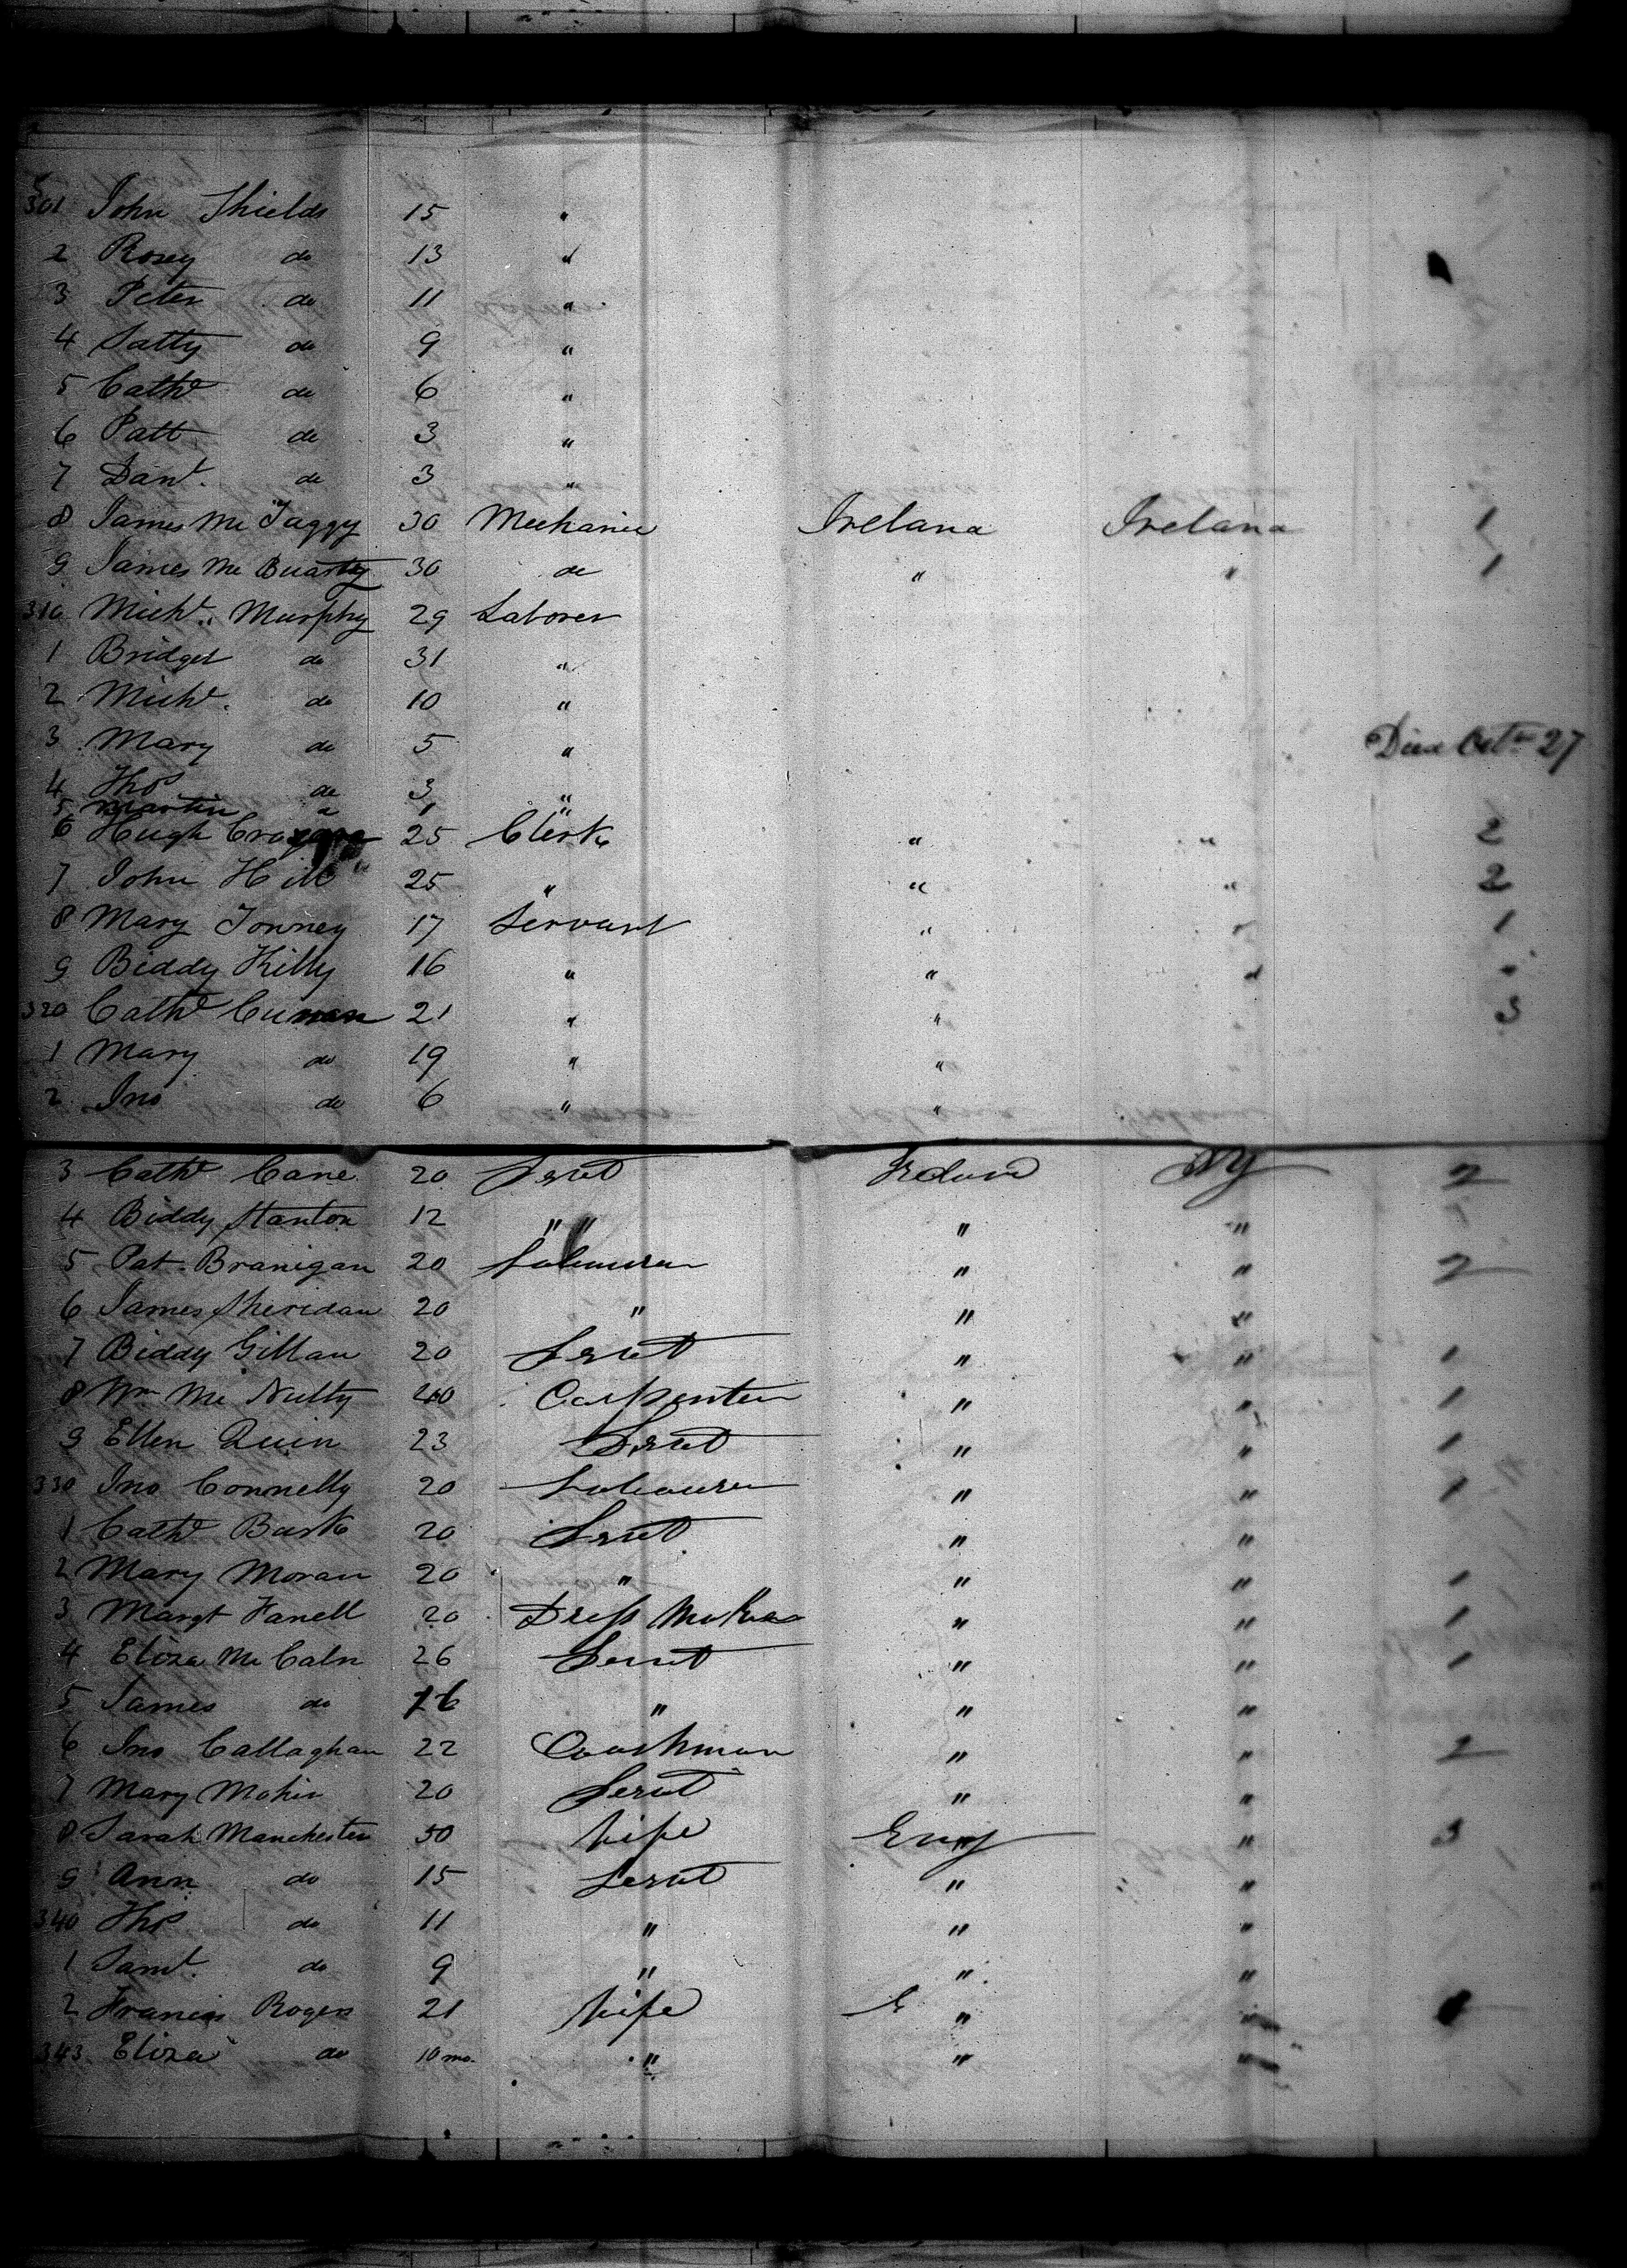 301 John Shields 15 "
2 Rosey do 13 "
3 Peter do 11 "
4 Satty do 9 "
5 Cathe do 6 "
6 Patt do 3 "
7 Danl. do 3 "
8 James Mc Taggy 30 Mechanic Ireland Ireland 1
9 James Mc 30 do " " 1
310 Michl. Murphy 29 Laborer
1 Bridget do 31 "
2 Michl. do 10 "
3 Mary do 5 " Died Octr 27
4 Thos do 3 "
5 Martin do 1 "
6 Hugh 25 Clerk " " 2
7 John Hill 25 " " " 2
8 Mary Tonney 17 Servant " " 1
9 Biddy Killy 16 " " " "
320 Cathe 21 " " 3
1 Mary do 19 " "
2 Jno do 6 " "
3 Cathe Cane 20 Servt Ireland NY 2
4 Biddy Stanton 12 " " " "
5 Pat. Branigan 20 Labourer " " 2
6 James Sheridan 20 " " "
7 Biddy Gillan 20 Servt " " 1
8 Wm Mc Nulty 40 Carpenter " " 1
9 Ellen Quin 23 Servt " " 1
330 Jno Connelly 20 Labourer " " 1
1 Cathe Burk 20 Servt " "
2 Mary Moran 20 " " " 1
3 Margt Farrell 20 Dress Maker " " 1
4 Eliza Mc Caln 26 Servt " " 1
5 James do " " "
6 Jno Callaghan 22 Coachman " " 2
7 Mary Mahin 20 Servt " "
8 Sarah Manchester 50 Wife Eng " 3
9 Ann do 15 Servt " "
340 Thos do 11 " " "
1 Saml. do 9 " " "
2 Francis Rogers 21 Wife E " "
343 Eliza do 10 mo. " " "